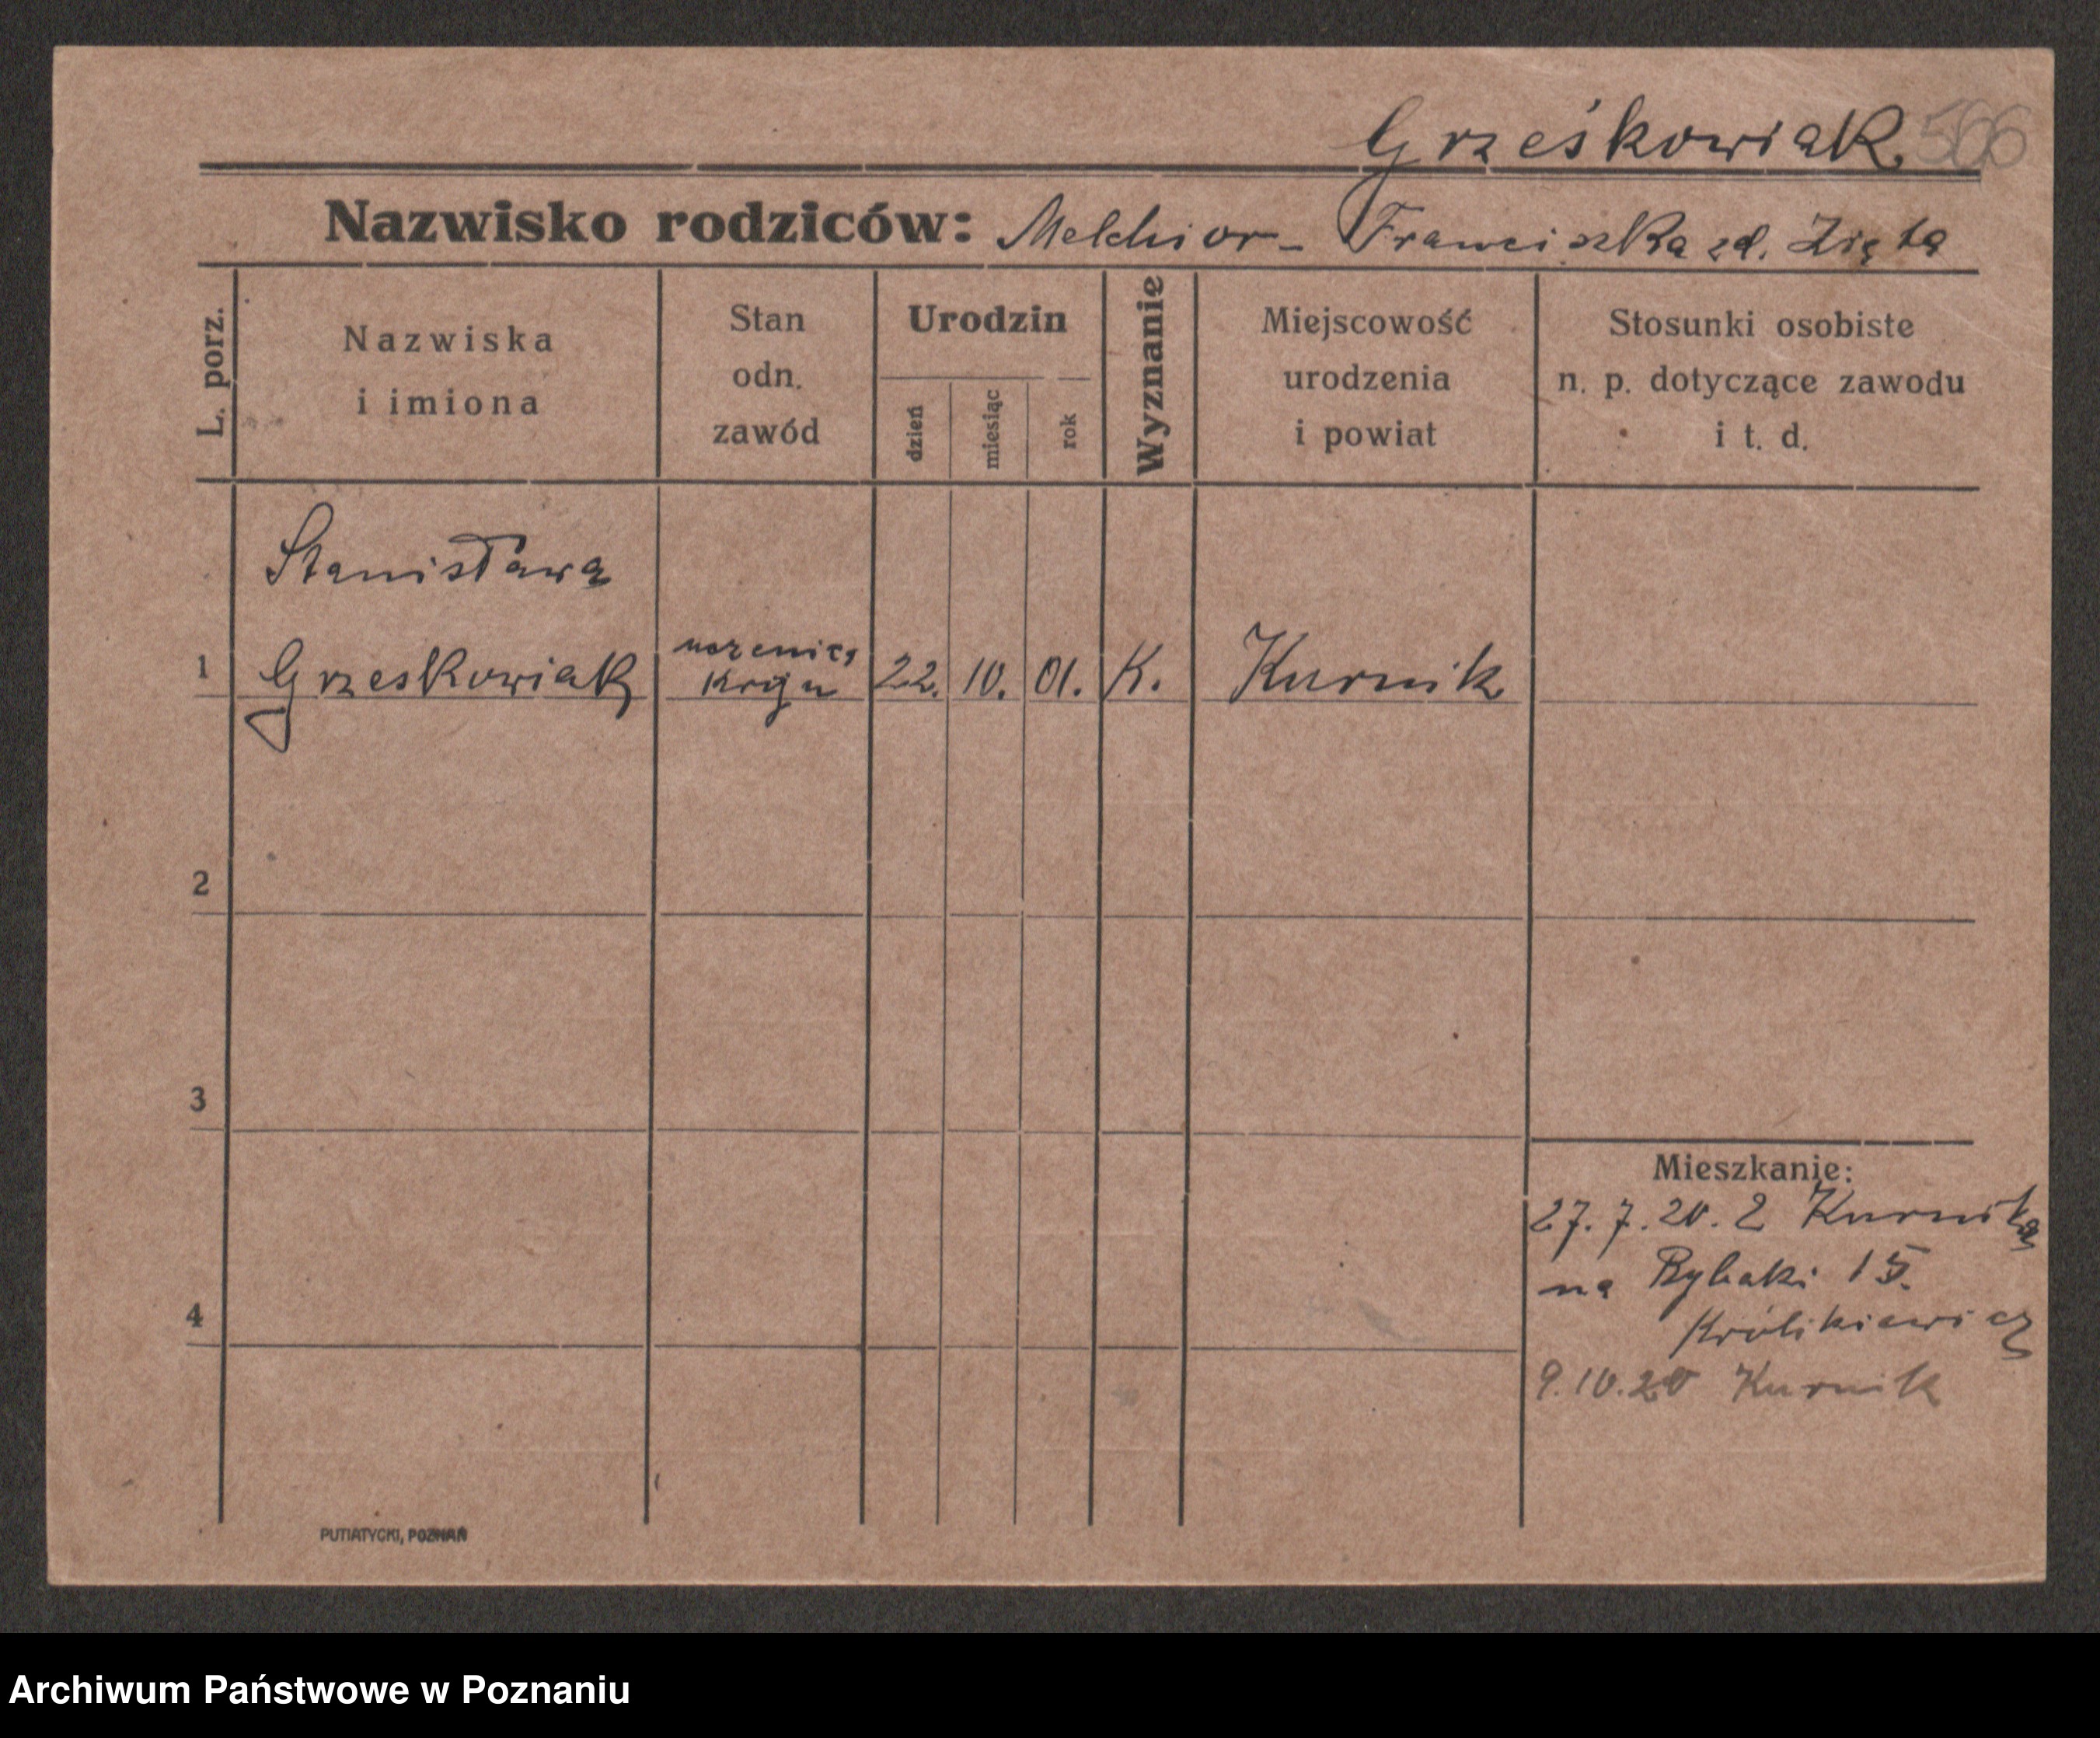 Grześkowiak 566
Nazwisko rodziców: Melchior - Franciszka zd. Zięta
L. porz.
Nazwiska
i imiona
Stan
odn.
zawód
Urodzin
dzień
miesiąc
rok
Wyznanie
Miejscowość
urodzenia
i powiat
Stosunki osobiste
n. p. dotyczące zawodu
i t. d.
Stanisława
1 Grzeskowiak
kroju 22. 10. 01. K. Kurnik
2
3
4
Mieszkanie:
27. 7. 20. z Kurnika
na Rybaki 15.
Królikiewicz
9.10.20 Kurnik
PUTIATYCKI, POZNAŃ
Archiwum Państwowe w Poznaniu